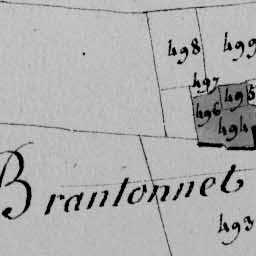 498
499
497
495
496
494
Brantonnet
493